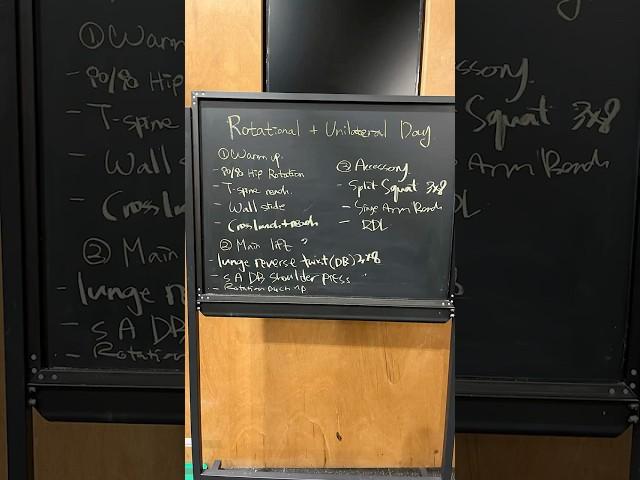 Rotational + Unilateral Day
① Warm up.
- 90/90 Hip Rotation
- T-spine reach.
- Wall slide
- Cross lunch + reach
② Main lift
- lunge reverse twist (DB) 3x8
- S A DB shoulder press
- Rotation push up
③ Accessory.
- Split Squat 3x8
- Singe Arm Bench
- RDL